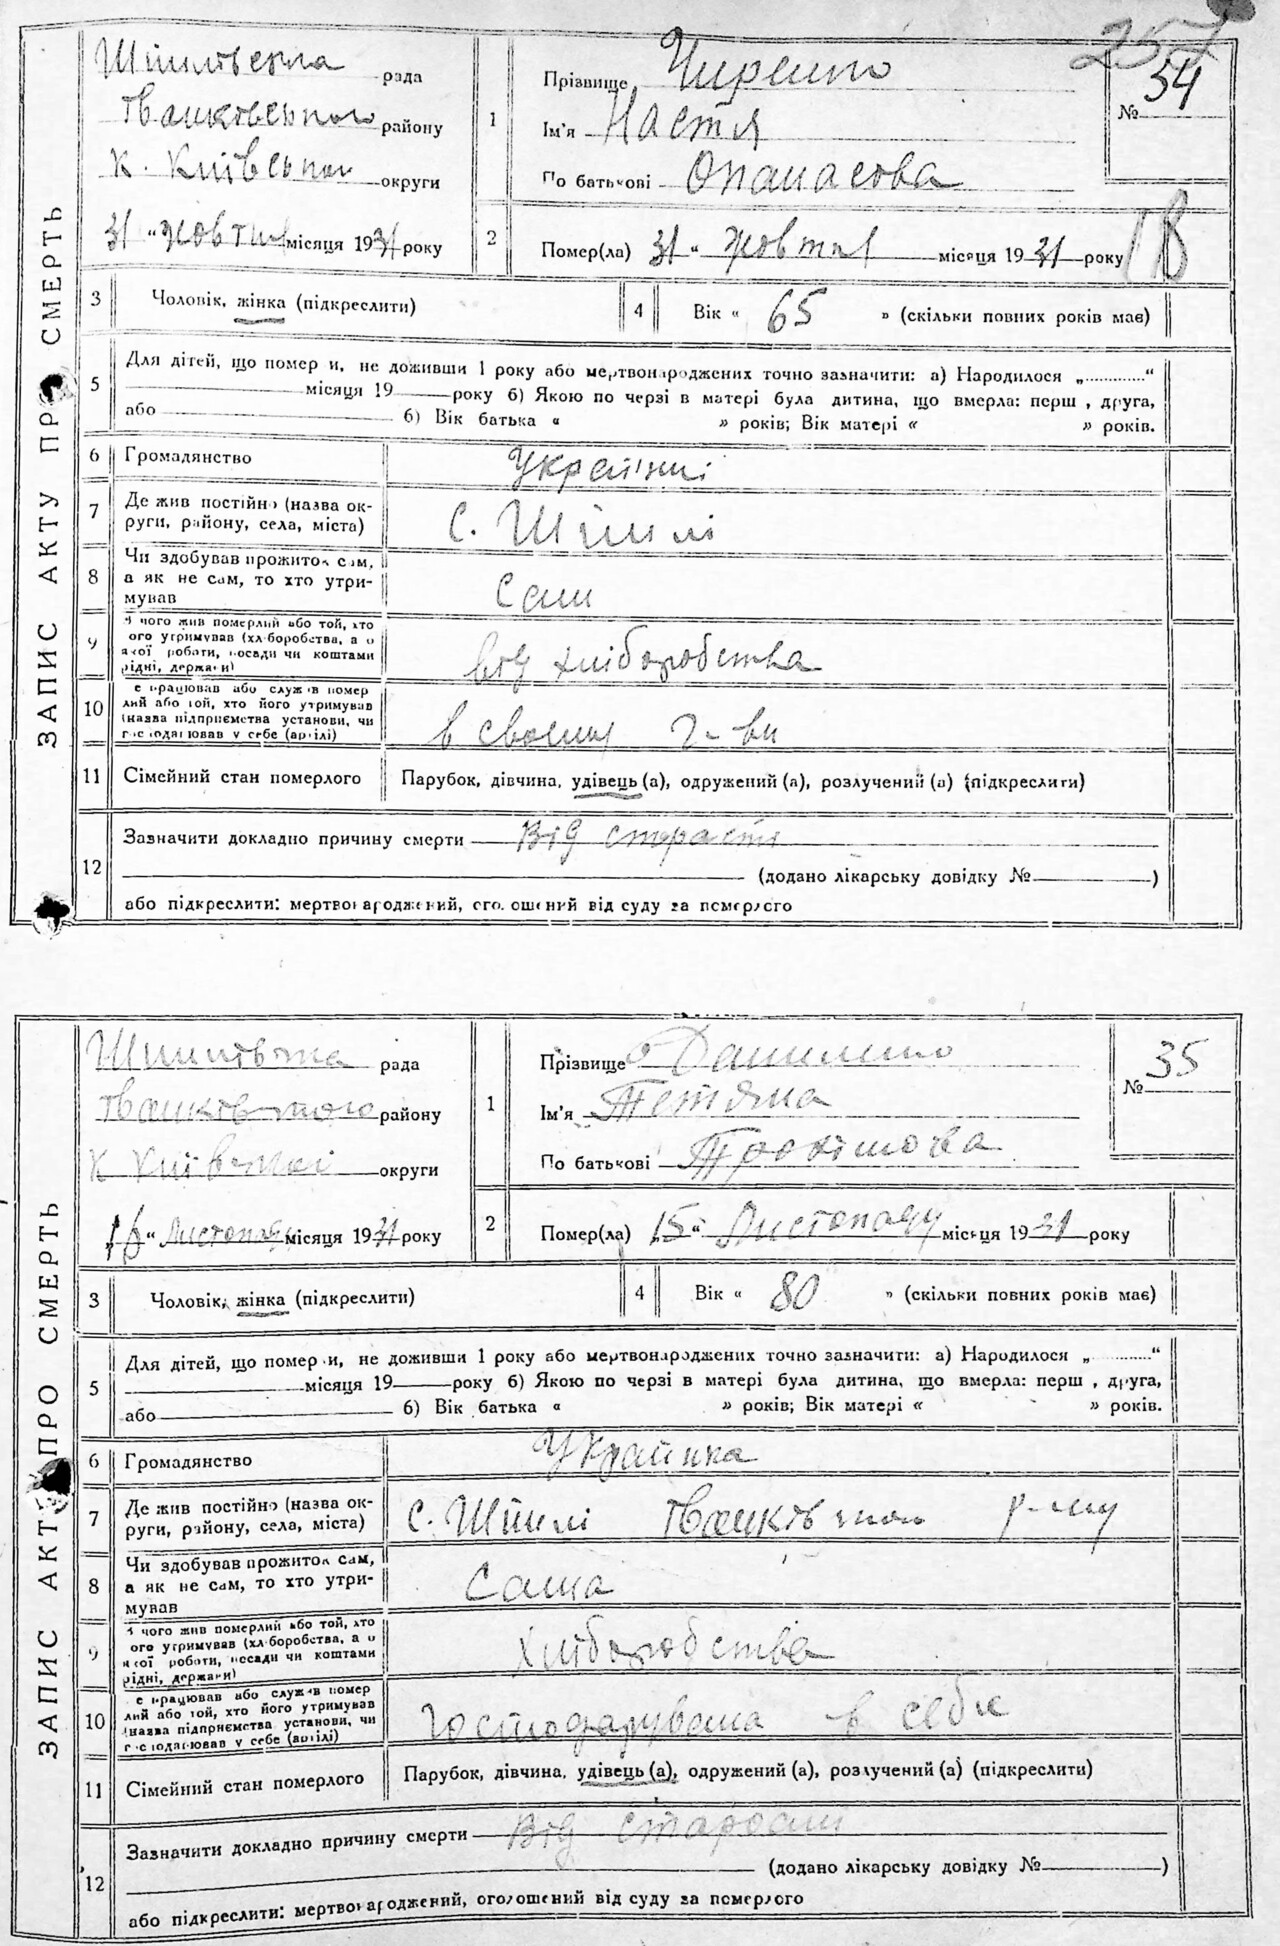 257
ЗАПИС АКТУ ПРО СМЕРТЬ
рада
району
К. Київської округи
31 " жовтня місяця 1931 року
1
Прізвище
Ім'я Настя
По батькові Опанасова
№ 34
2
Помер(ла) 31 " жовтня місяця 1931 року
18
3 Чоловік, жінка (підкреслити)
4 Вік « 65 » (скільки повних років має)
5 Для дітей, що помер и, не доживши 1 року або мертвонароджених точно зазначити: а) Народилося „ “
місяця 19 року б) Якою по черзі в матері була дитина, що вмерла: перш , друга,
або б) Вік батька « » років; Вік матері « » років.
6 Громадянство
7 Де жив постійно (назва ок-
руги, району, села, міста)
С. Шпилі
8 Чи здобував прожиток сам,
а як не сам, то хто утри-
мував
Сам
9 чого жив померлий або той, хто
ого утримував (хл боробства, а о
якої роботи, посади чи коштами
рідні, держави)
від хліборобства
10 е працював або служ в помер
лий або той, хто його утримував
(назва підприємства установи, чи
г с одарював у себе (артілі)
в своему г-ві
11 Сімейний стан померлого Парубок, дівчина, удівець (а), одружений (а), розлучений (а) (підкреслити)
12 Зазначити докладно причину смерти Від старости
(додано лікарську довідку № )
або підкреслити: мертвонароджений, оголошений від суду за померлого
ЗАПИС АКТУ ПРО СМЕРТЬ
рада
району
К Київської округи
16 " Листопаду місяця 1931 року
1
Прізвище Даниленко
Ім'я Тетяна
По батькові Трохимова
№ 35
2
Помер(ла) 15 " Листопаду місяця 1931 року
3 Чоловік, жінка (підкреслити)
4 Вік « 80 » (скільки повних років має)
5 Для дітей, що помер и, не доживши 1 року або мертвонароджених точно зазначити: а) Народилося „ “
місяця 19 року б) Якою по черзі в матері була дитина, що вмерла: перш , друга,
або б) Вік батька « » років; Вік матері « » років.
6 Громадянство Українка
7 Де жив постійно (назва ок-
руги, району, села, міста)
С. Шпилі р-ну
8 Чи здобував прожиток сам,
а як не сам, то хто утри-
мував
Сама
9 чого жив померлий або той, хто
ого утримував (хл боробства, а о
якої роботи, посади чи коштами
рідні, держави)
Хліборобства
10 е працював або служ в помер
лий або той, хто його утримував
(назва підприємства установи, чи
г с одарював у себе (артілі)
Господарувала в себе
11 Сімейний стан померлого Парубок, дівчина, удівець (а), одружений (а), розлучений (а) (підкреслити)
12 Зазначити докладно причину смерти Від старости
(додано лікарську довідку № )
або підкреслити: мертвонароджений, оголошений від суду за померлого